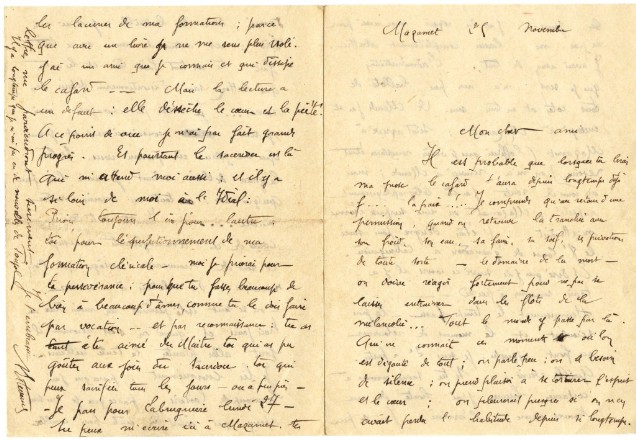 Mazamet 25 Novembre
Mon cher ami
Il est probable que lorsque tu liras
ma prose le cafard t'aura depuis longtemps déjà
f..... la paix !... Je comprends qu'au retour d'une
permission quand on retrouve la tranchée avec
son froid, son eau, sa faim, sa soif, sa privation
de toute sorte — le domaine de la mort —
on doive réagir fortement pour ne pas se
laisser entraîner dans les flots de la
mélancolie... Tout le monde y passe par là.
Qui ne connaît ces moments où l'on
est dégoûté de tout ; on parle peu ; on a besoin
de silence ; on prend plaisir à se torturer l'esprit
et le cœur ; on pleurerait presque si on n'en
avait perdu l'habitude depuis si longtemps.
les lacunes de ma formation ; parce
que avec un livre je ne me sens plus isolé.
J'ai un ami que je connais et qui dissipe
le cafard — — Mais la lecture a
un défaut : elle dessèche le cœur et la piété !
A ce point de vue je n'ai pas fait grands
progrès. Et pourtant le sacerdoce est là
qui m'attend moi aussi ; et il y a
si loin de moi à l'Idéal :
Prions toujours l'un pour l'autre
toi pour le perfectionnement de ma
formation cléricale — moi je prierai pour
ta persévérance ; pour que tu fasses beaucoup de
bien à beaucoup d'âmes, comme tu le dois faire
par vocation — et par reconnaissance : tu as
été aimé du Maître, toi qui as pu
goûter aux joies du Sacerdoce ; toi qui
peux sacrifier tous les jours — ou à peu près —
— Je pars pour Labruguière lundi 27 —
Tu peux m'écrire ici à Mazamet, tes
lettres me parviendront sûrement
Il y a longtemps que je n'ai pas eu de nouvelles de